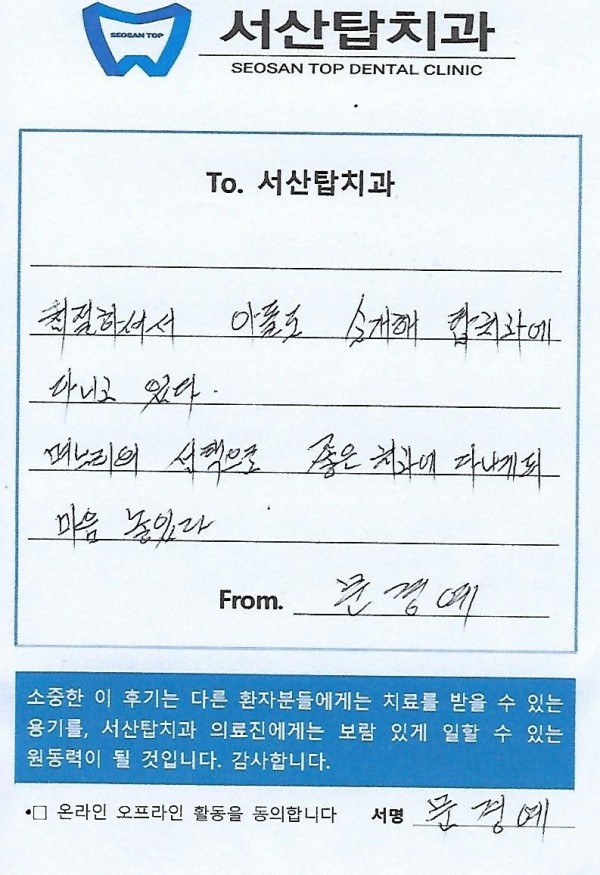 SEOSAN TOP
서산탑치과
SEOSAN TOP DENTAL CLINIC
To. 서산탑치과
친절하셔서 아들도 소개해 탑치과에
다니고 있다.
며느리의 선택으로 좋은 치과에 다니게 되
마음 놓인다
From. 문경예
소중한 이 후기는 다른 환자분들에게는 치료를 받을 수 있는
용기를, 서산탑치과 의료진에게는 보람 있게 일할 수 있는
원동력이 될 것입니다. 감사합니다.
•□ 온라인 오프라인 활동을 동의합니다 서명 문경예